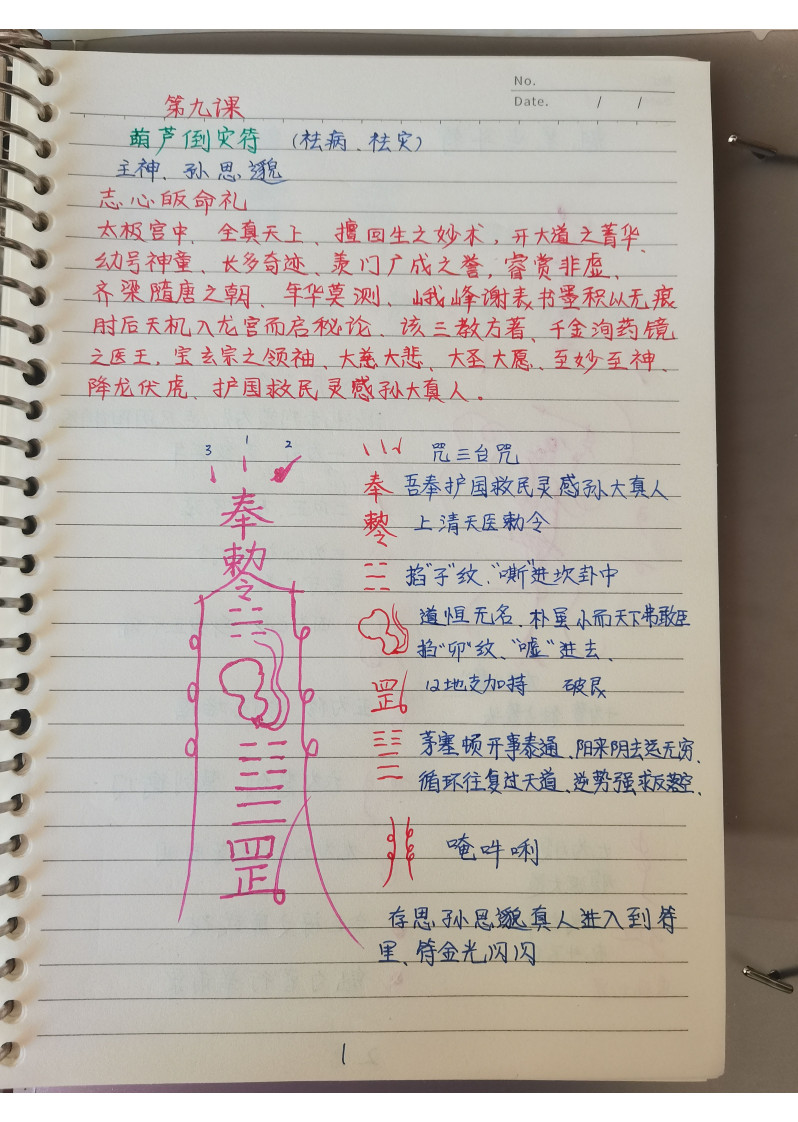 No.
Date. / /
第九课
葫芦倒灾符 (祛病、祛灾)
主神、孙思邈
志心皈命礼
太极宫中、全真天上、擅回生之妙术，开大道之菁华、
幼号神童、长多奇迹、羡门广成之誉，睿赏非虚、
齐梁随唐之朝、年华莫测、峨峰谢表书墨积以无痕
肘后天机入龙宫而启秘论、该三教方著、千金洵药镜
之医王，宝玄宗之领袖、大慈大悲、大圣大愿、至妙至神、
降龙伏虎、护国救民灵感孙大真人。
3 1 2
咒三台咒
奉
勅令
奉 吾奉护国救民灵感孙大真人
勅令 上清天医勅令
掐"子"纹、"嘶"进坎卦中
道恒无名、朴虽小而天下弗敢臣
掐"卯"纹、"嘘"进去、
罡 12地支加持 破艮
茅塞顿开事泰通、阳来阴去运无穷、
循环往复过天道、逆势强求反落空、
罡
唵吽唎
存思孙思邈真人进入到符
里、符金光闪闪
1